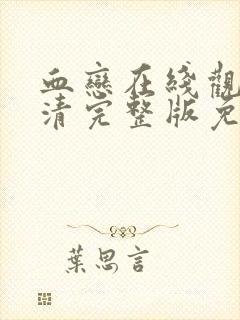 血戀在綫觀
清完整版免
葉思言